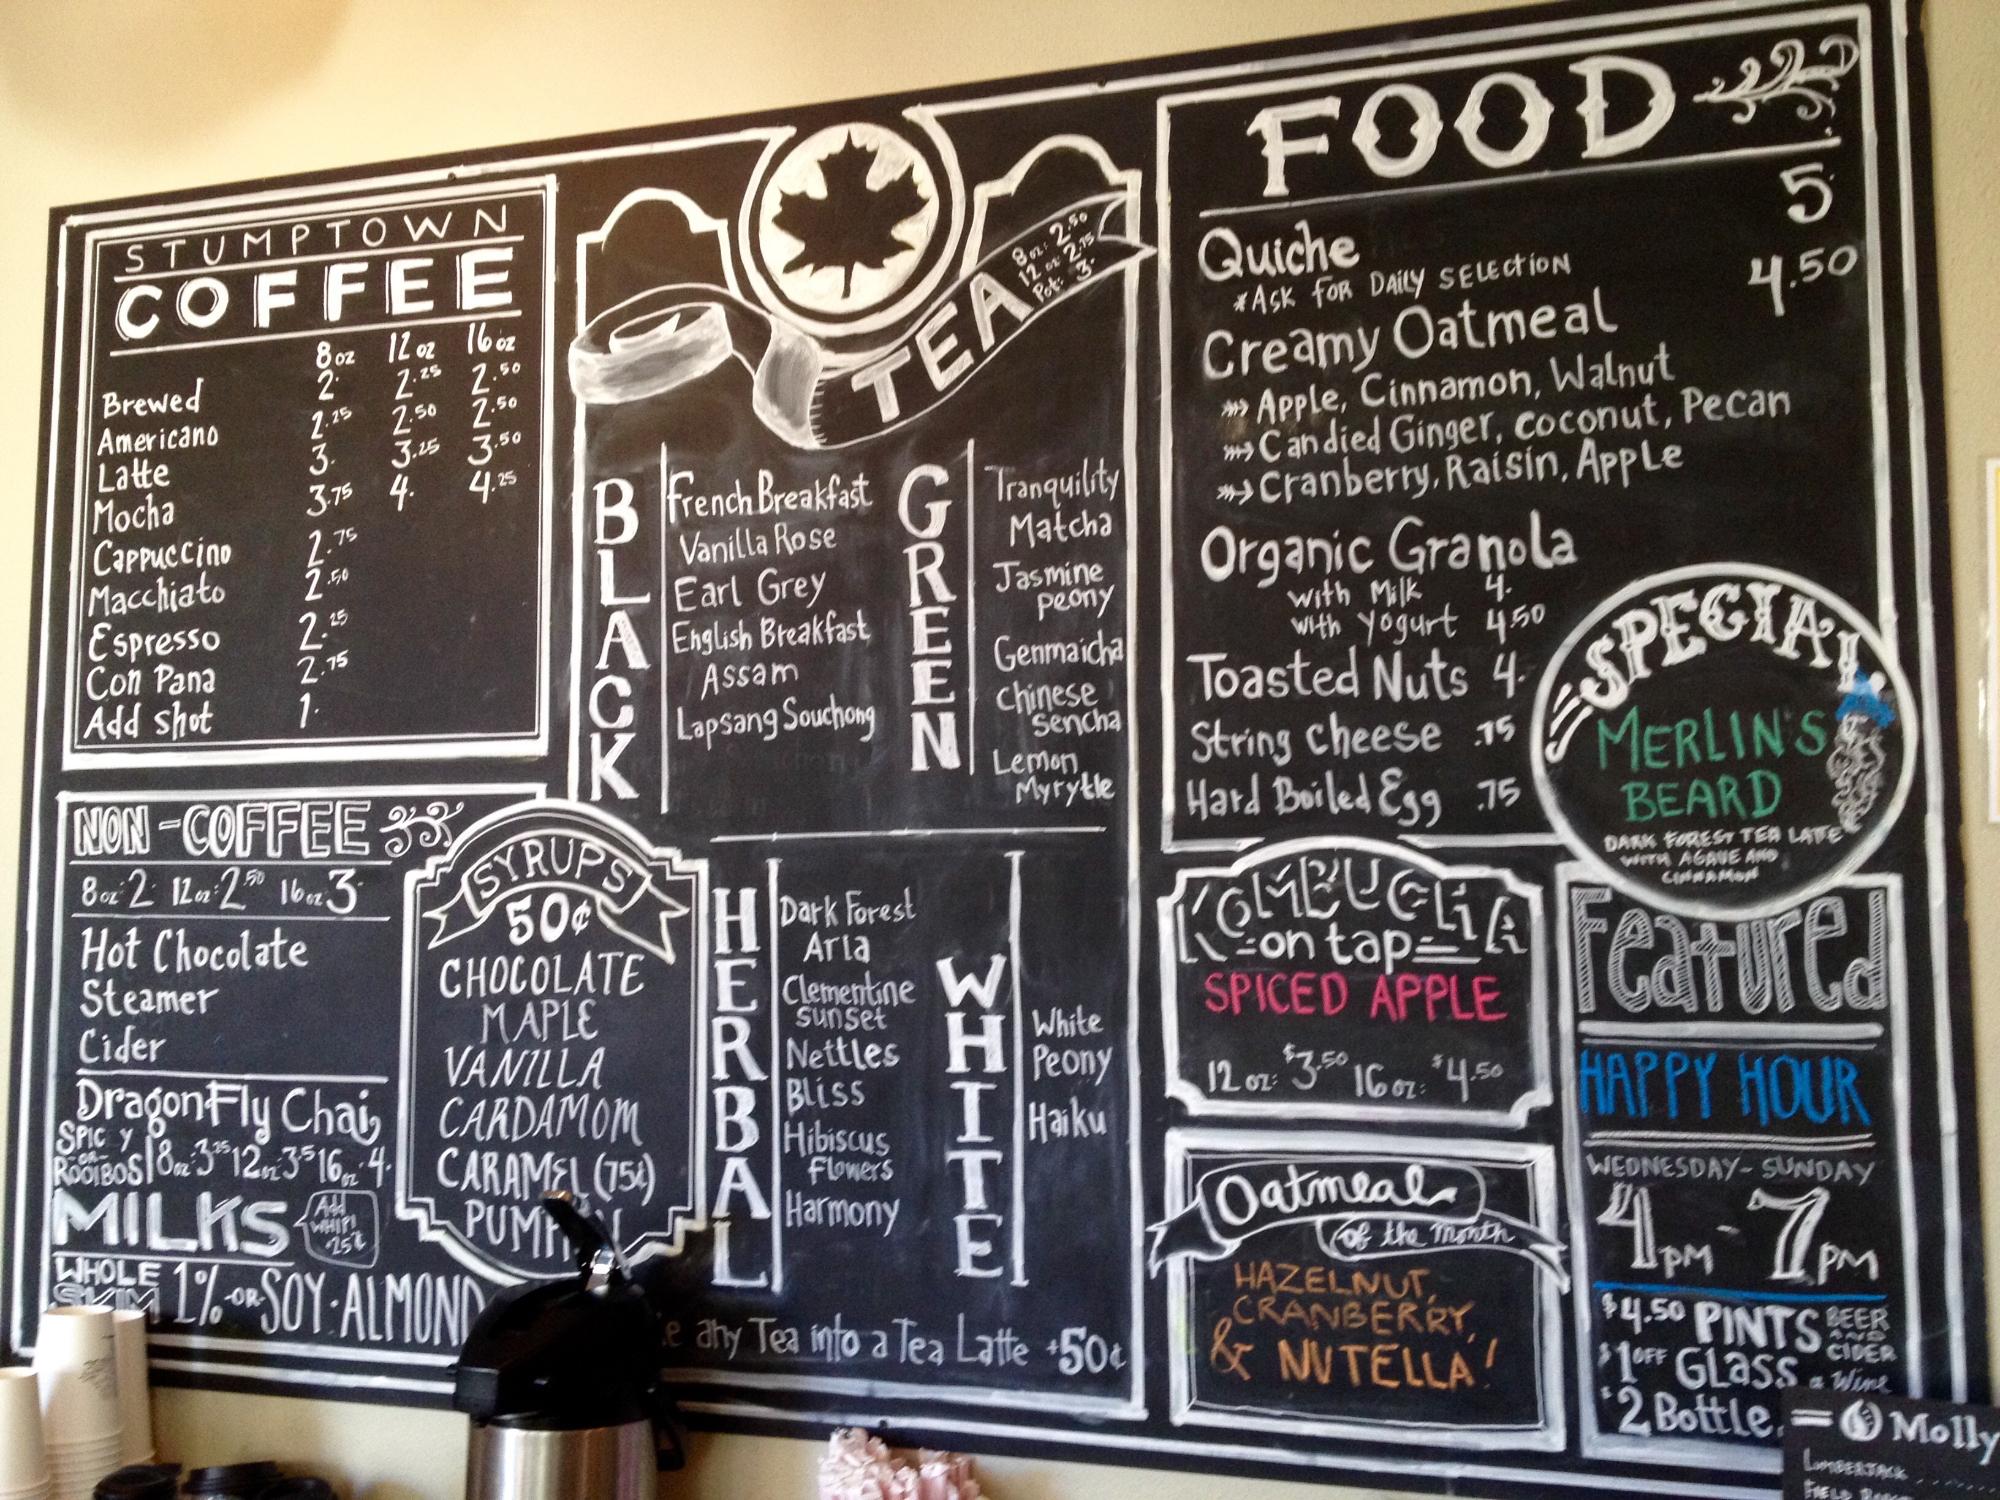 STUMPTOWN
COFFEE
8oz 12oz 16oz
Brewed 2. 2.25 2.50
Americano 2.25 2.50 2.50
Latte 3. 3.25 3.50
Mocha 3.75 4. 4.25
Cappuccino 2.75
Macchiato 2.50
Espresso 2.25
Con Pana 2.75
Add shot 1.
NON-COFFEE
8oz: 2 12oz: 2.50 16oz 3.
Hot Chocolate
Steamer
Cider
DragonFly Chai
SPICY
-OR-
ROOIBOS 8oz 3.25 12oz 3.5 16oz 4.
MILKS
Add
WHIP!
.25¢
WHOLE
SKIM 1% -OR- SOY · ALMOND
SYRUPS
50¢
CHOCOLATE
MAPLE
VANILLA
CARDAMOM
CARAMEL (75¢)
TEA
8oz: 2.50
12oz: 2.75
Pot: 3.
BLACK
French Breakfast
Vanilla Rose
Earl Grey
English Breakfast
Assam
Lapsang Souchong
GREEN
Tranquility
Matcha
Jasmine
peony
Genmaicha
Chinese
sencha
Lemon
Myrytle
HERBAL
Dark Forest
Arla
Clementine
sunset
Nettles
Bliss
Hibiscus
Flowers
Harmony
WHITE
White
Peony
Haiku
any Tea into a Tea Latte +50¢
FOOD
Quiche 5.
*ASK FOR DAILY SELECTION
Creamy Oatmeal 4.50
Apple, Cinnamon, Walnut
Candied Ginger, coconut, Pecan
Cranberry, Raisin, Apple
Organic Granola
with Milk 4.
with Yogurt 4.50
Toasted Nuts 4.
String cheese .75
Hard Boiled Egg .75
SPECIAL
MERLIN'S
BEARD
DARK FOREST TEA LATTE
WITH AGAVE AND
CINNAMON
KOMBUCHA
=on tap=
SPICED APPLE
12oz: $3.50 16oz: $4.50
Oatmeal
of the month
HAZELNUT,
CRANBERRY,
& NUTELLA!
Featured
HAPPY HOUR
WEDNESDAY-SUNDAY
4PM - 7PM
$4.50 PINTS BEER
AND
CIDER
$1 OFF GLASS Wine
$2 Bottle
Molly
LUMBERJACK
FIELD